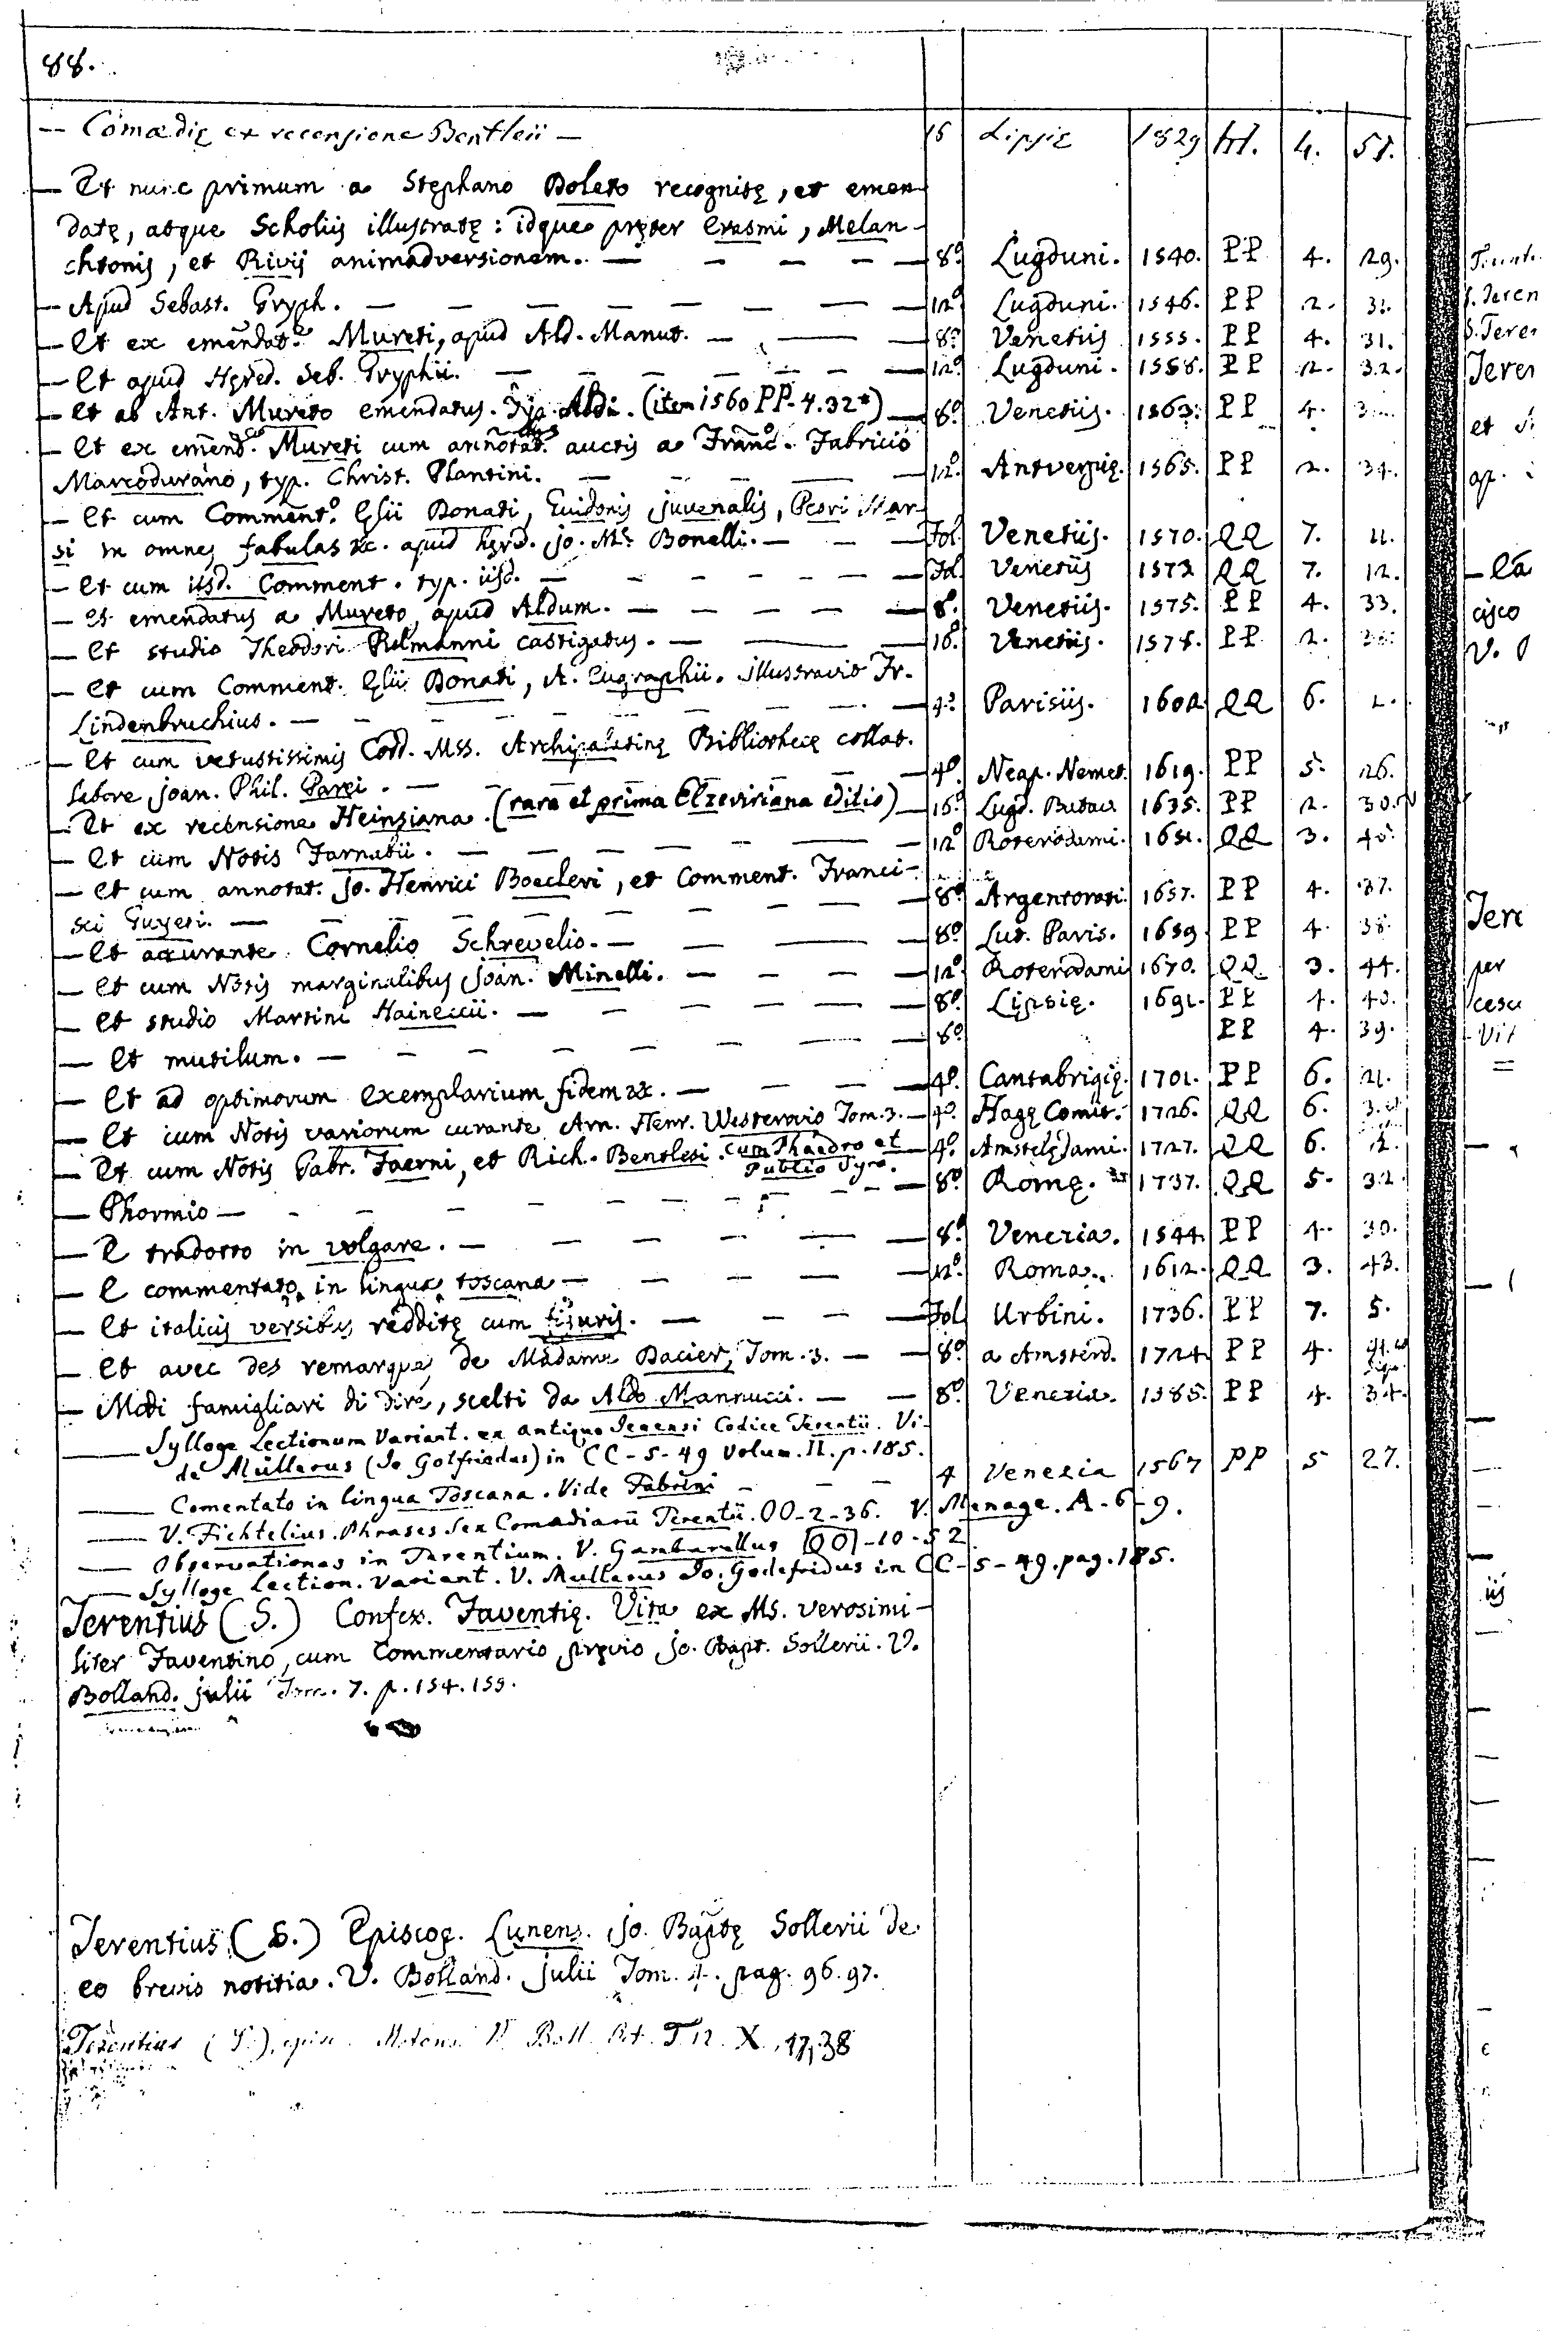 88.
— Comœdię ex recensione Bentleii — 16 Lipsię 1829 4. 51.
— Et nunc primum a Stephano Doleto recognitę, et emen-
datę, atque Scholiis illustratę: idque pręter Erasmi, Melan-
chtonis, et Rivii animadversionem. — 8º Lugduni. 1540. PP 4. 29.
— Apud Sebast. Gryph. — 12º Lugduni. 1546. PP 2. 31.
— Et ex emendat.e Mureti, apud Ald. Manut. — 8º Venetiis 1555. PP 4. 31.
— Et apud Hęred. Seb. Gryphii. — 12º Lugduni. 1558. PP 2. 32.
— Et ab Ant. Mureto emendatus. Typ. Aldi. (item 1560 PP. 4. 32*) — 8º Venetiis. 1563. PP 4.
— Et ex emend. Mureti cum annotat. auctis a Franc.o Fabricio
Marcodurano, typ. Christ. Plantini. — 12º Antverpię. 1565. PP 2. 34.
— Et cum Comment.o Ęlii Donati, Guidonis juvenalis, Petri Mar-
si in omnes fabulas &c. apud hęrd. jo. M. Bonelli. — Fol. Venetiis. 1570. QQ 7. 11.
— Et cum iisd. Comment. typ. iisd. — Fol. Venetiis 1572 QQ 7. 12.
— et emendatus a Mureto, apud Aldum. — 8º. Venetiis. 1575. PP 4. 33.
— Et studio Theodori Pulmanni castigatus. — 16º. Venetiis. 1578. PP 2.
— Et cum Comment. Ęlii Donati, A. Eugraphii. illustravit Fr.
Lindenbruchius. — 4º Parisiis. 1602 QQ 6.
— Et cum vetustissimis Codd. Mss. Archipalatinę Bibliothecę collat.
labore Joan. Phil. Parei. — 4º. Neap. Nemet. 1619. PP 5. 26.
— Et ex recensione Heinsiana. (rara et prima Elzeviriana editio) — 16º Lugd. Batav. 1635. PP 2. 30.
— Et cum Notis Farnabii. — 12º Roterodami. 1651. QQ 3. 45.
— Et cum annotat. Jo. Henrici Boecleri, et Comment. Franci-
sci Guyeti. — 8º Argentorati. 1657. PP 4. 37.
— Et accurante Cornelio Schrevelio. — 8º Lut. Paris. 1659 PP 4. 38.
— Et cum Notis marginalibus Joan. Minelli. — 12º Roterodami 1670. QQ. 3. 44.
— Et studio Martini Haineccii. — 8º Lipsię. 1691. PP 4. 40.
— Et mutilum. — 8º PP 4. 39.
— Et ad optimorum exemplarium fidem &c. — 4º. Cantabrigię. 1701. PP 6. 21.
— Et cum Notis variorum curante Arn. Henr. Westerovio Tom. 3. — 4º. Hagę Comit. 1726. QQ 6.
— Et cum Notis Gabr. Faerni, et Rich. Bentleii. cum Phaedro et 4º Amstelędami. 1727. QQ 6. 2.
Publio Syro.
— Phormio — 8º. Romę. 1737. QQ 5. 32.
— E tradotto in volgare. — 8º Venezia. 1544. PP 4. 30.
— E commentato in lingua toscana — 12º. Roma. 1612. QQ 3. 43.
— Et italicis versibus redditę cum figuris. — Fol. Urbini. 1736. PP 7. 5.
— Et avec des remarques de Madame Dacier, Tom. 3. — 8º a Amsterd. 1724 PP 4.
— Modi famigliari di dire, scelti da Aldo Mannucci. — 8º Venezia. 1585. PP 4. 34.
— Sylloge Lectionum Variant. ex antiquo Jenensi Codice Terentii. Vi-
de Müllerus (Jo Gotfriedus) in CC-5-49 Volum. II. p. 185.
— Comentato in lingua Toscana. Vide Fabrini — 4 Venezia 1567 PP 5 27.
— V. Fichtelius. Phrases Sex Comædiarū Terentii. OO-2-36. V. Menage. A-6-9.
— Observationes in Terentium. V. Gambarellus QQ-10-52
— Sylloge Lection. Variant. V. Mullerus Jo. Godefridus in CC-5-49. pag. 185.
Terentius (S.) Confex. Faventię. Vita ex Ms. verosimi-
liter Faventino, cum Commentario pręvio Jo. Bapt. Sollerii. V.
Bolland. julii Tom. 7. p. 154. 155.
Terentius (S.) Episcop. Lunens. Jo. Baptę Sollerii de
eo brevis notitia. V. Bolland. julii Tom. 4. pag. 96. 97.
Terentius (S.), episc. Metens. V. Boll. Oct. T 12. X, 17, 38